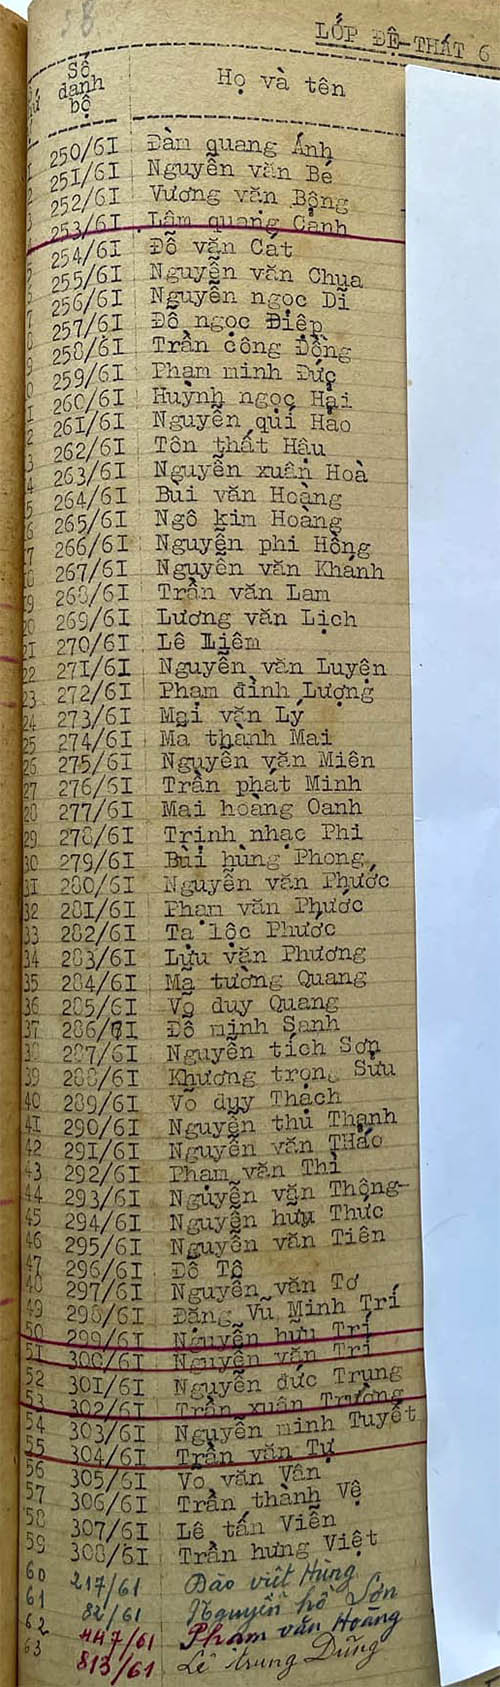 58
LỚP ĐỆ-THẤT 6
Số danh bộ Họ và tên
250/61 Đàm quang Ánh
2 251/61 Nguyễn văn Bé
3 252/61 Vương văn Bông
253/61 Lâm quang Cảnh
5 254/61 Đỗ văn Cát
255/61 Nguyễn văn Chụa
7 256/61 Nguyễn ngọc Dĩ
8 257/61 Đỗ ngọc Điệp
9 258/61 Trần công Đồng
0 259/61 Phạm minh Đức
1 260/61 Huỳnh ngọc Hải
2 261/61 Nguyễn quí Hảo
3 262/61 Tôn thất Hậu
4 263/61 Nguyễn xuân Hoà
5 264/61 Bùi văn Hoàng
6 265/61 Ngô kim Hoàng
7 266/61 Nguyễn phi Hồng
8 267/61 Nguyễn văn Khánh
9 268/61 Trần văn Lam
20 269/61 Lương văn Lịch
21 270/61 Lê Liêm
22 271/61 Nguyễn văn Luyện
23 272/61 Phạm đình Lượng
24 273/61 Mai văn Lý
25 274/61 Mã thành Mai
26 275/61 Nguyễn văn Miên
27 276/61 Trần phát Minh
28 277/61 Mai hoàng Oanh
29 278/61 Trịnh nhạc Phi
30 279/61 Bùi hùng Phong
31 280/61 Nguyễn văn Phước
32 281/61 Phạm văn Phước
33 282/61 Tạ lộc Phước
34 283/61 Lưu văn Phương
35 284/61 Mã tường Quang
36 285/61 Võ duy Quang
37 286/61 Đỗ minh Sanh
38 287/61 Nguyễn tích Sơn
39 288/61 Khương trọng Sửu
40 289/61 Võ duy Thạch
41 290/61 Nguyễn thủ Thạnh
42 291/61 Nguyễn văn THảo
43 292/61 Phạm văn Thì
44 293/61 Nguyễn văn Thông
45 294/61 Nguyễn hữu Thức
46 295/61 Nguyễn văn Tiên
47 296/61 Đỗ Tô
48 297/61 Nguyễn văn Tơ
49 298/61 Đặng Vũ Minh Trí
50 299/61 Nguyễn hữu Trí
51 300/61 Nguyễn văn Trí
52 301/61 Nguyễn đức Trung
53 302/61 Trần xuân Trường
54 303/61 Nguyễn minh Tuyết
55 304/61 Trần văn Tự
56 305/61 Võ văn Vân
57 306/61 Trần thành Vệ
58 307/61 Lê tấn Viễn
59 308/61 Trần hưng Việt
60 217/61 Đào viết Hùng
61 82/61 Nguyễn hồ Sơn
62 447/61 Phạm văn Hoàng
63 813/61 Lê trung Dũng